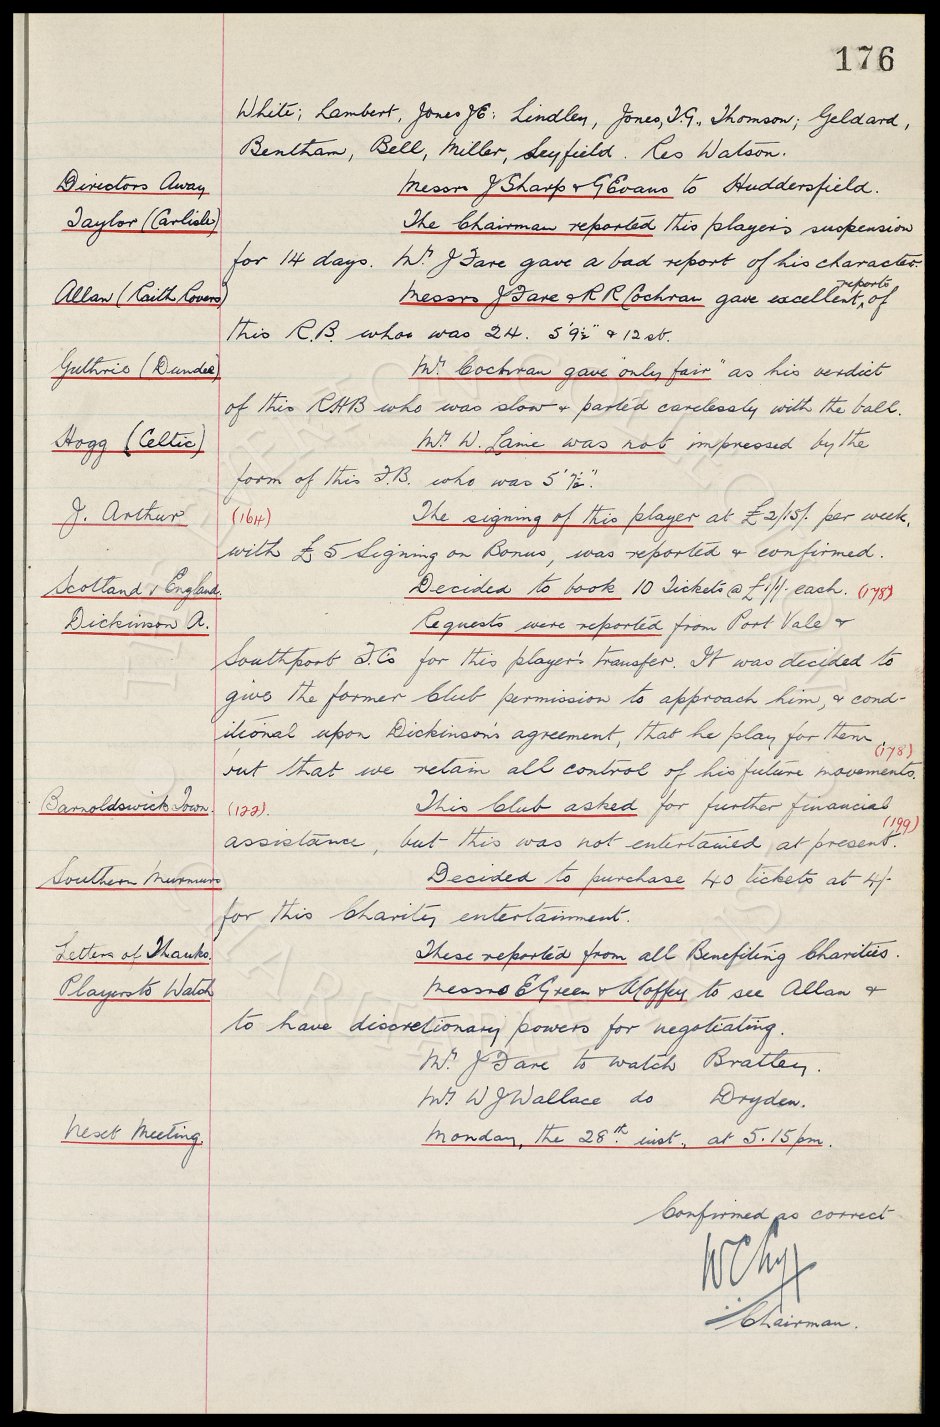 176
White; Lambert, Jones J E: Lindley, Jones, T.G., Thomson; Geldard,
Bentham, Bell, Miller, Leyfield. Res Watson.
Directors Away Messrs J Sharp & G Evans to Huddersfield.
Taylor (Carlisle) The Chairman reported this player's suspension
for 14 days. Mr. J Fare gave a bad report of his character.
Allan (Raith Rovers) Messrs J Fare & R R Cochran gave excellent reports of
this R.B. who was 24. 5'9½" & 12 st.
Guthrie (Dundee) Mr. Cochran gave "only fair" as his verdict
of this RHB who was slow & parted carelessly with the ball.
Hogg (Celtic) Mr. W. Laine was not impressed by the
form of this F.B. who was 5' 7½".
J. Arthur (164) The signing of this player at £2/15/- per week,
with £5 Signing on Bonus, was reported & confirmed.
Scotland v England. Decided to book 10 Tickets @ £1/1/- each. (178)
Dickinson A. Requests were reported from Port Vale &
Southport F.Cs for this player's transfer. It was decided to
give the former Club permission to approach him, & cond-
itional upon Dickinson's agreement, that he play for them,
but that we retain all control of his future movements. (178)
Barnoldswick Town. (122). This Club asked for further financial
assistance, but this was not entertained at present. (199)
Southern Murmurs Decided to purchase 40 tickets at 4/-
for this Charity entertainment.
Letters of Thanks. These reported from all Benefiting Charities.
Players to Watch Messrs E Green & A Coffey to see Allan &
to have discretionary powers for negotiating.
Mr. J Fare to watch Bratley.
Mr. W J Wallace do Dryden.
Next Meeting. Monday, the 28th. inst., at 5.15 pm.
Confirmed as correct
Chairman.